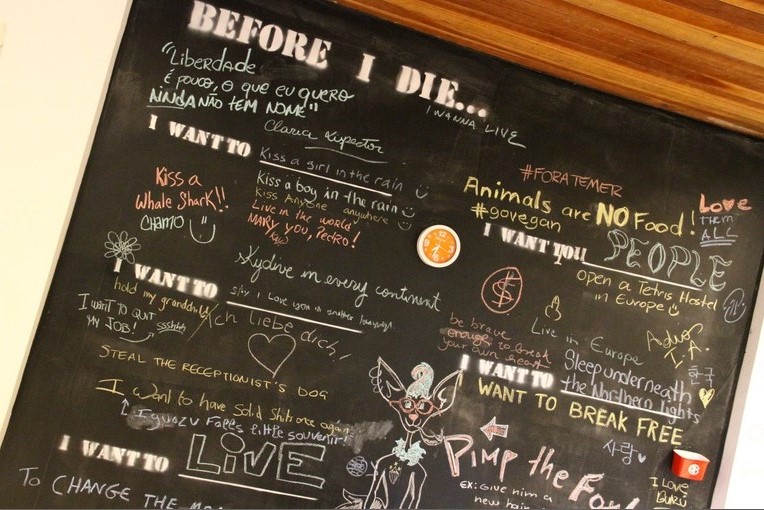 BEFORE I DIE...
"Liberdade
é pouco, o que eu quero
AINDA NÃO TEM NOME"
I WANNA LIVE
I WANT TO
Kiss a girl in the rain
Kiss a boy in the rain
Kiss Anyone anywhere
Live in the world
MARY YOU, PEDRO!
Kiss a
Whale Shark!!
CHAMO
#FORATEMER
Animals are NO Food!
#govegan
Love
THEM
ALL
I WANT YOU
PEOPLE
open a Tetris Hostel
in Europe
$
Skydive in every continent
I WANT TO
say I love you in another
hold my grandchild
Ich liebe dich,
I want to QUIT
MY JOB!
ssshhh
be brave
enough to break
your own heart
Live in Europe
STEAL THE RECEPTIONIST'S DOG
I WANT TO
Sleep underneath
the Northern lights
한국
I want to have Solid Shits once again
Iguazu Falls little souvenir!
I WANT TO BREAK FREE
사랑
I WANT TO
LiVE
PIMP the Fox!
EX: GIVE HIM A
new hair
I LOVE
TO CHANGE THE